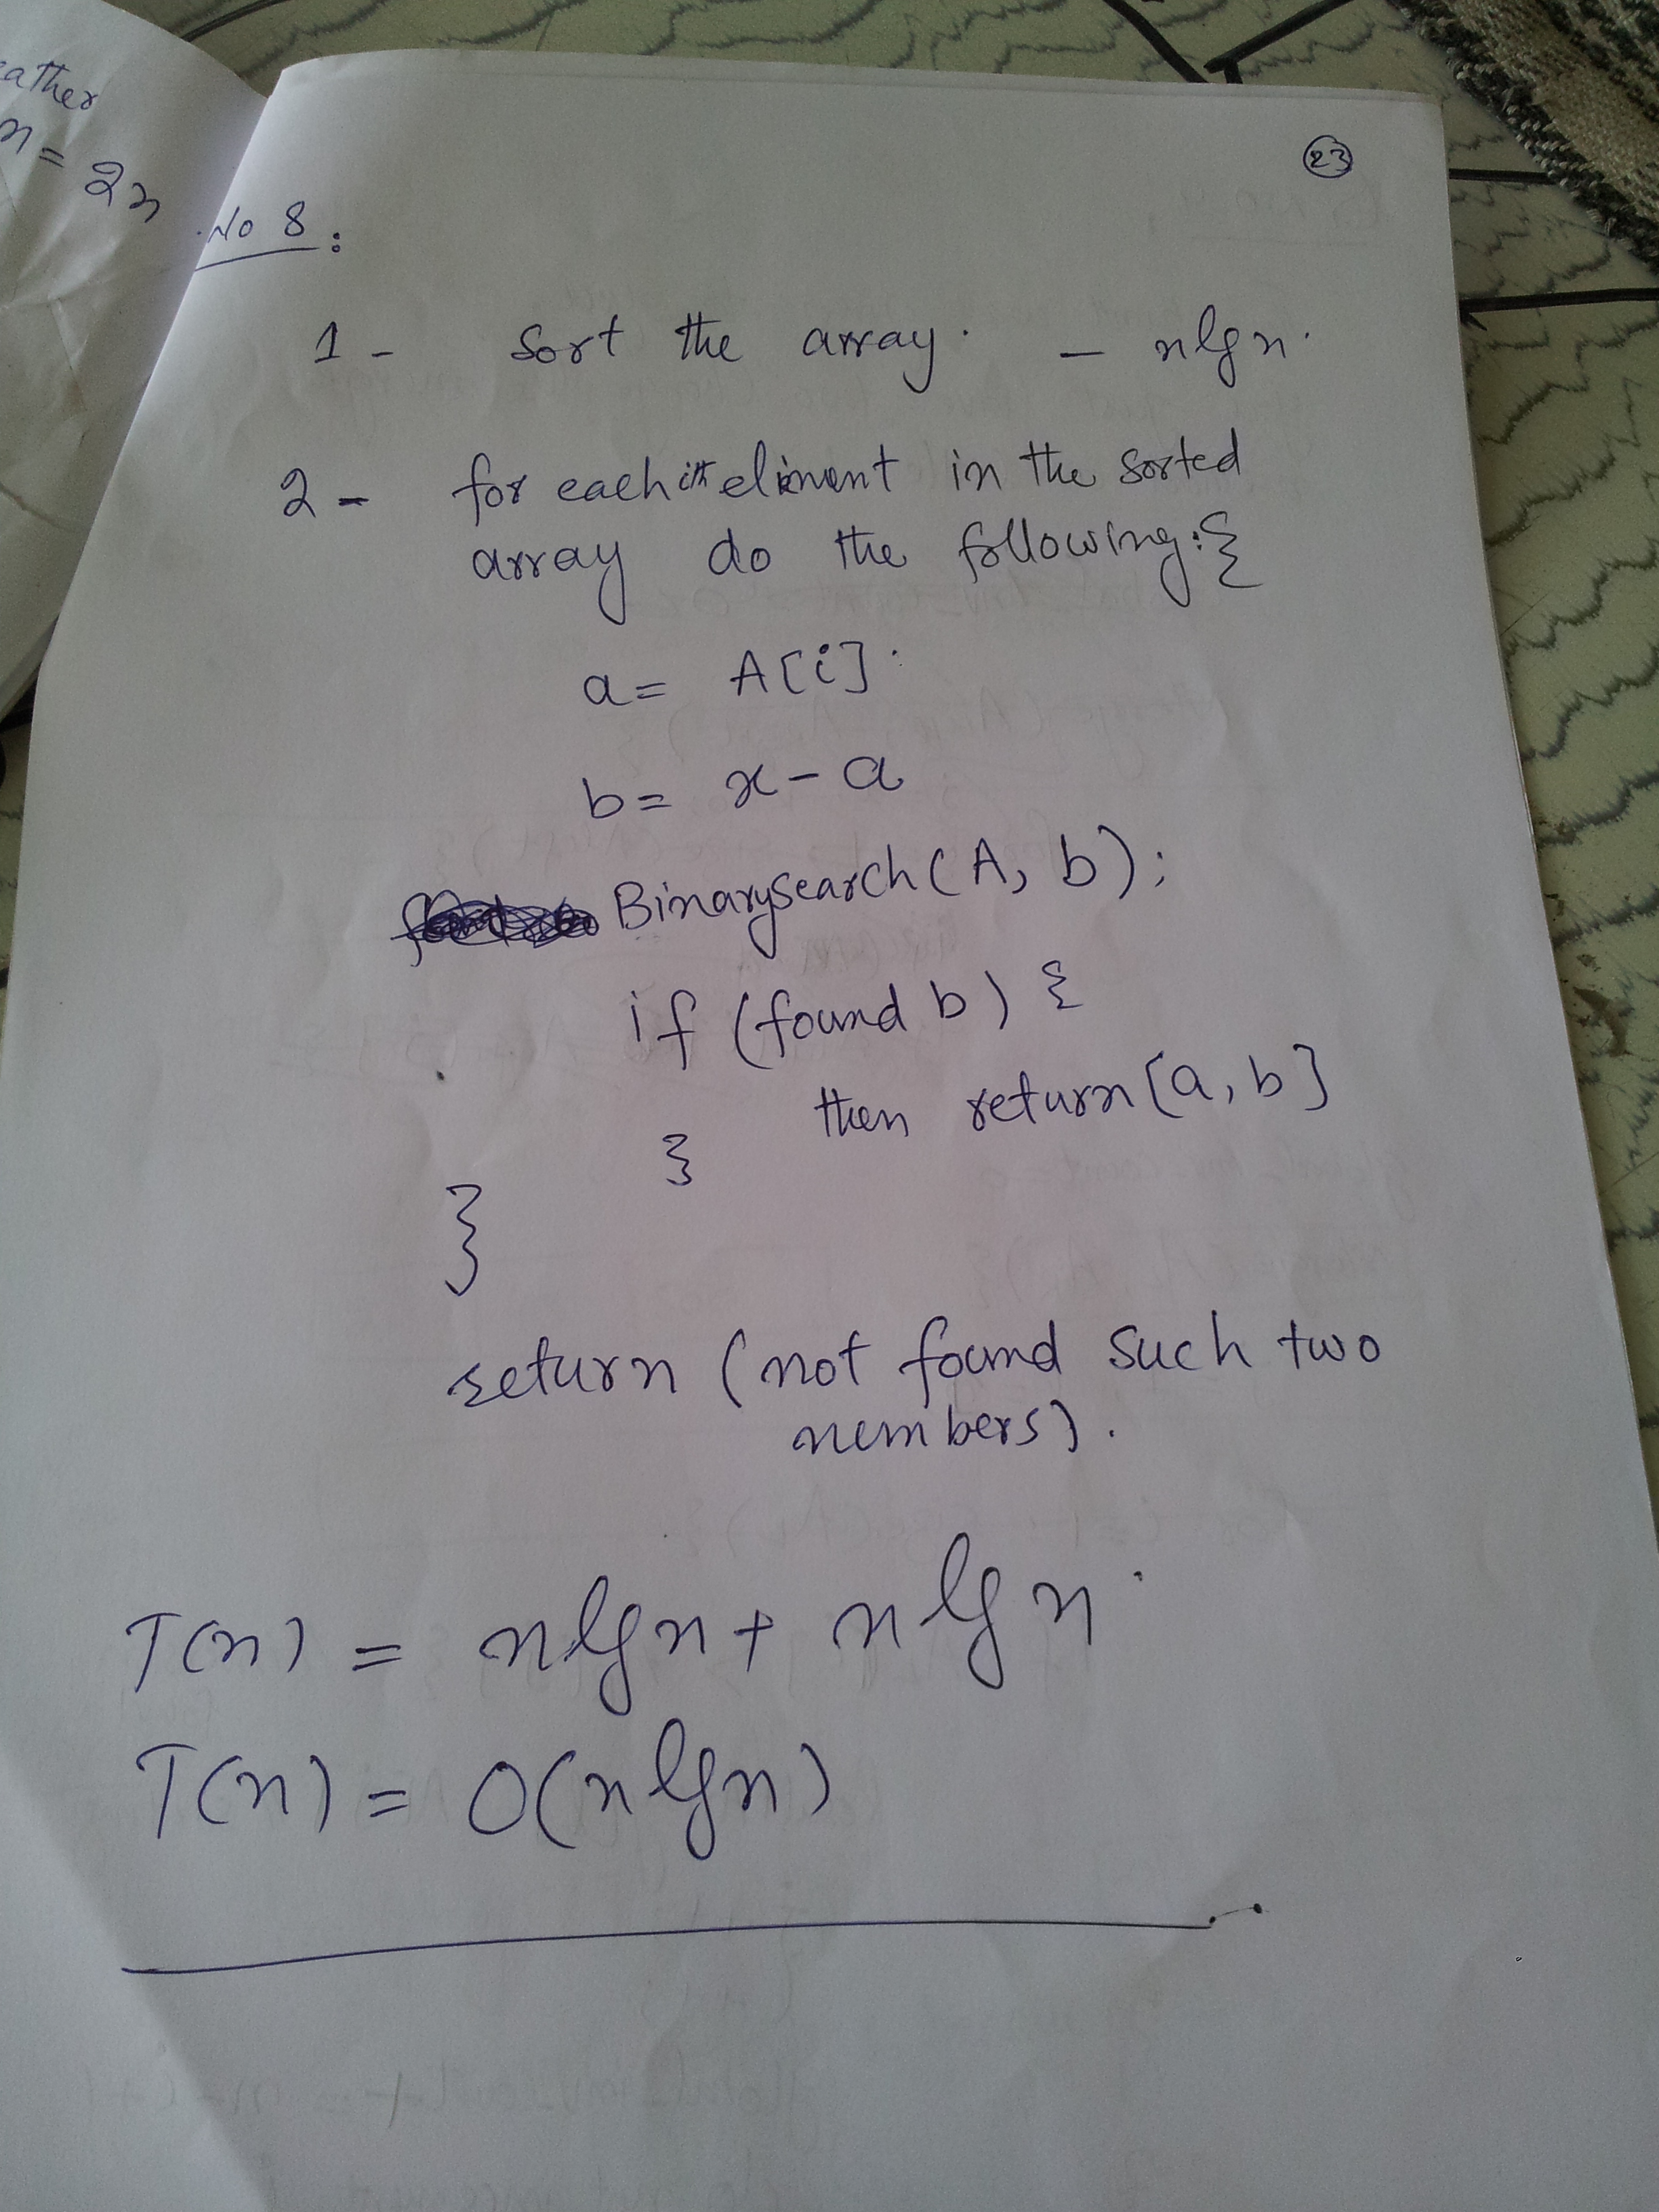 23
No 8 :
1 - Sort the array. — nlgn.
2 - for each ith eliment in the sorted
array do the following: {
a = A[i].
b = x - a
Binarysearch (A, b) ;
if (found b) {
then return [a, b]
}
}
return (not found such two
numbers).
T(n) = nlgn + nlgn.
T(n) = O(nlgn)